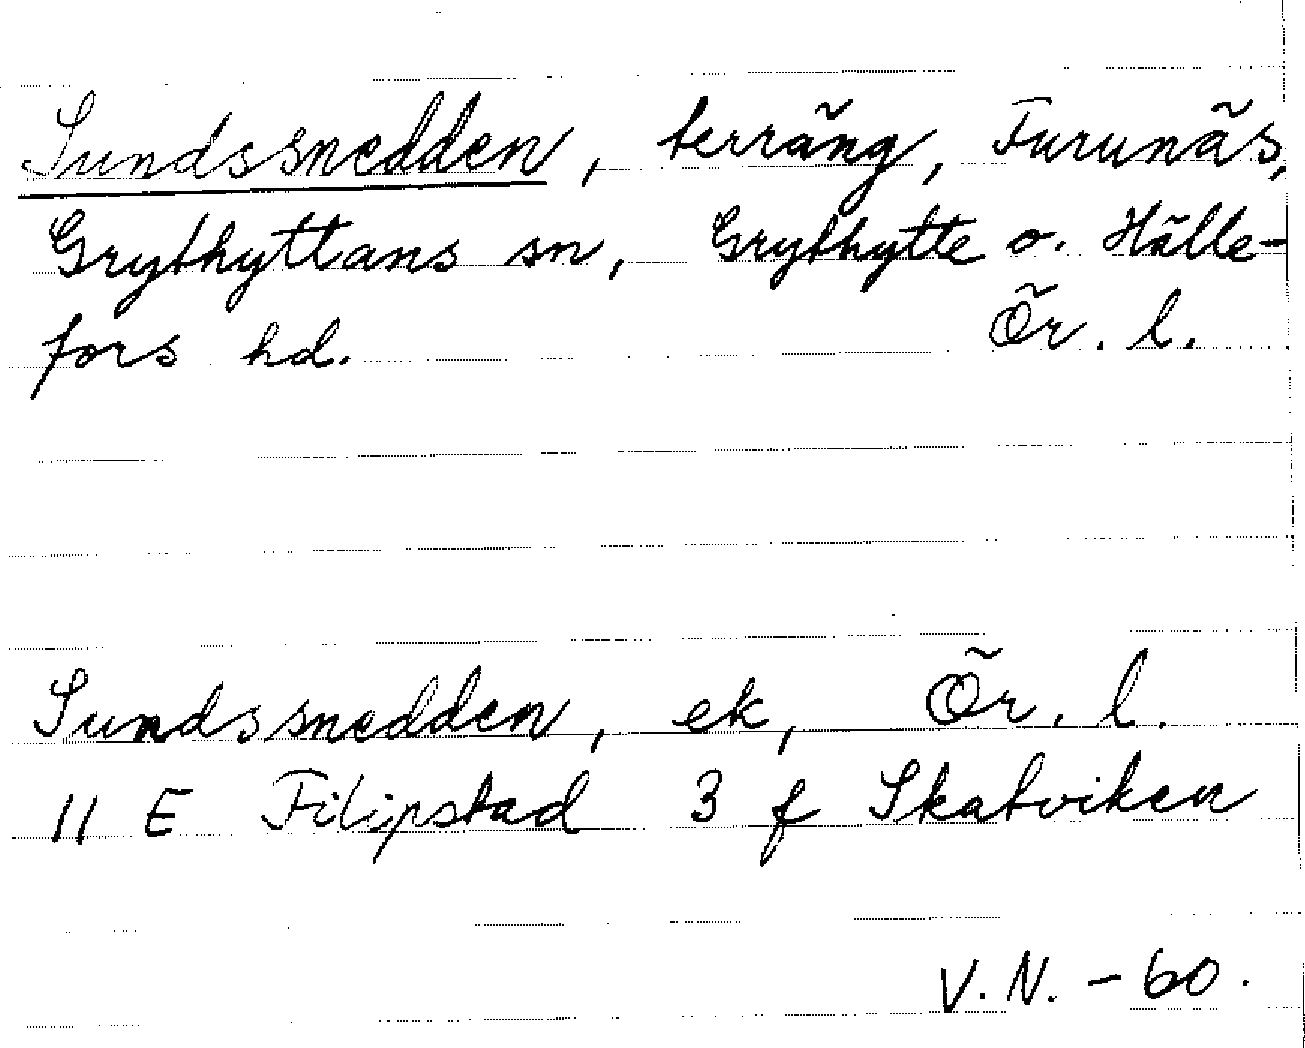 Sundssnedden, terräng, Furunäs,
Grythyttans sn, Grythytte o. Hälle-
fors hd. Ör. l.
Sundssnedden, ek, Ör. l.
11 E Filipstad 3 f Skatviken
V.N. - 60.